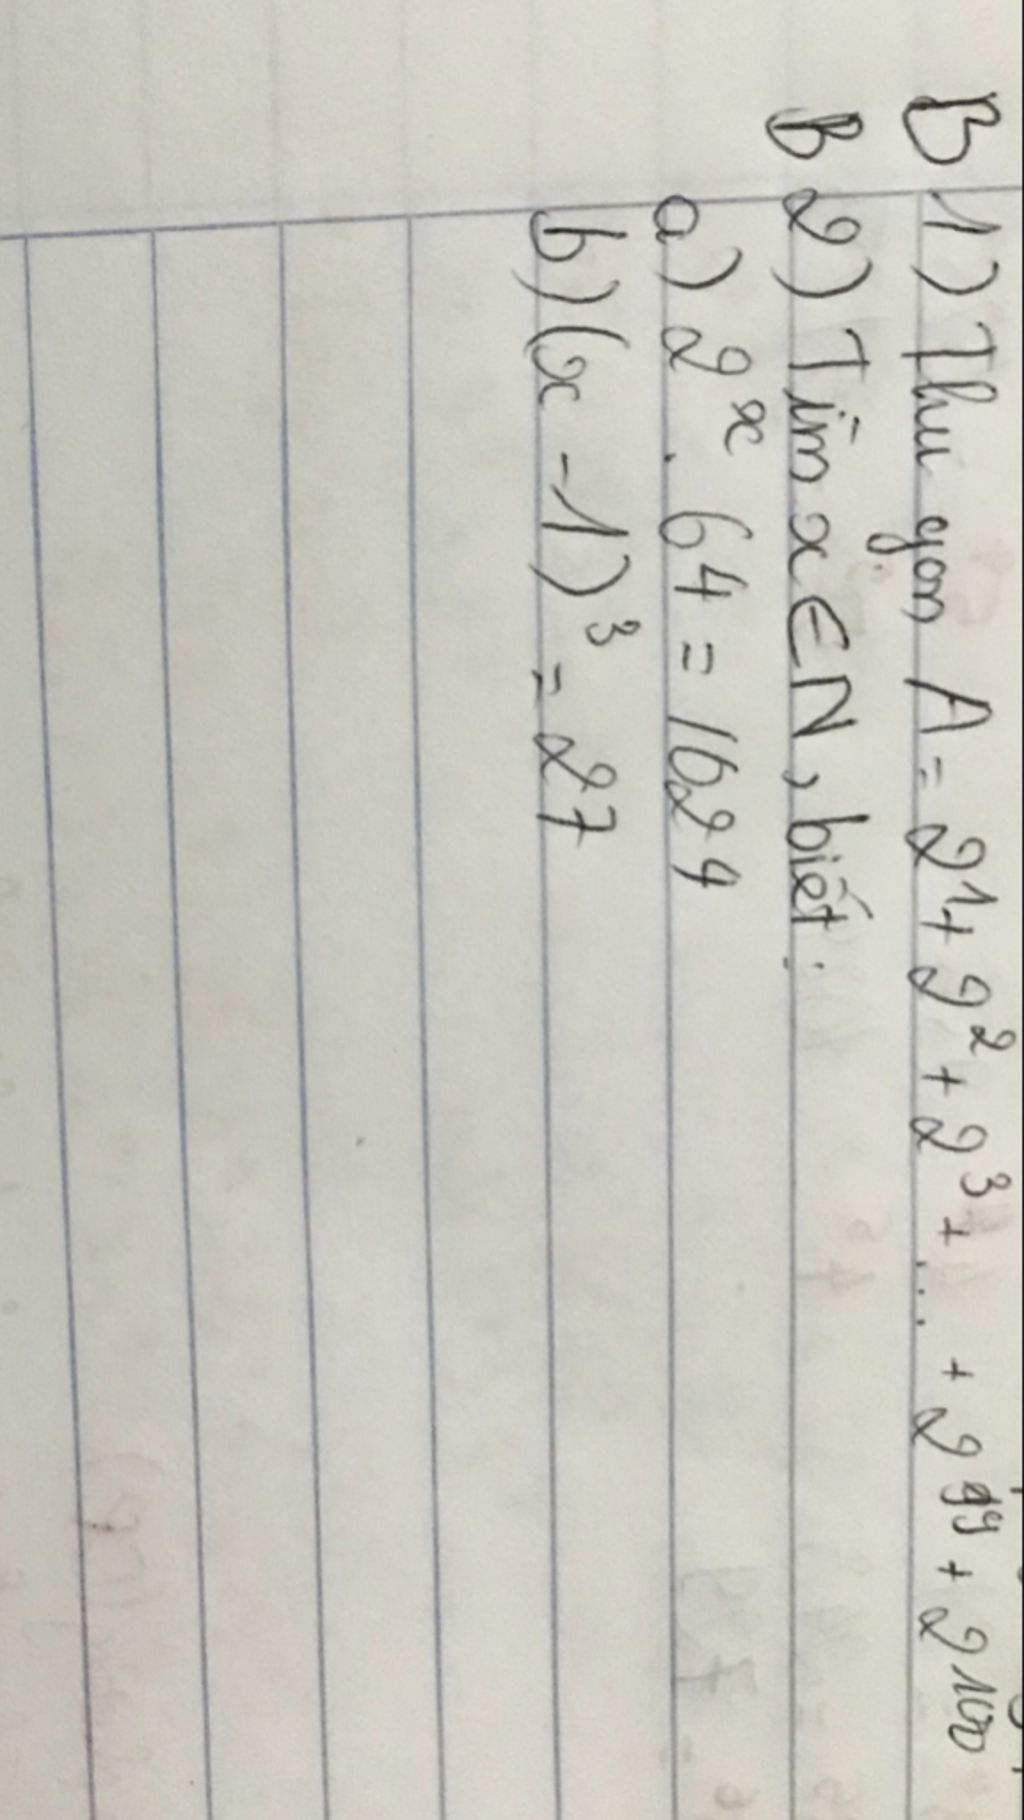 B 1) Thu gọn A = 2¹ + 2² + 2³ + ... + 2⁹⁹ + 2¹⁰⁰
B 2) Tìm x ∈ N, biết:
a) 2ˣ . 64 = 1624
b) (x - 1)³ = 27